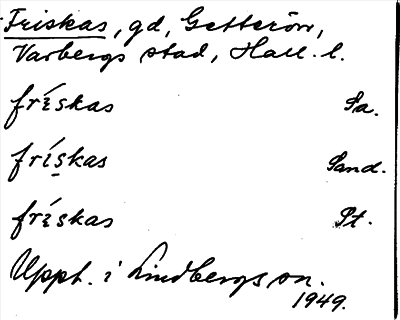 Friskas, gd, Getterön,
Varbergs stad, Hall. l.
frískas Sa.
frískas Sand.
frískas St.
Uppt. i Lindbergs sn.
1949.